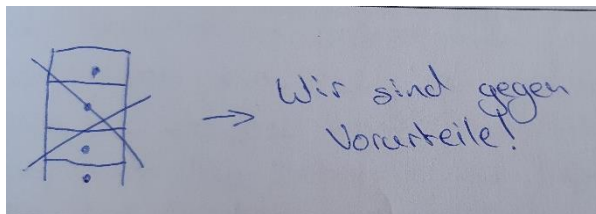 Wir sind gegen
Vorurteile!